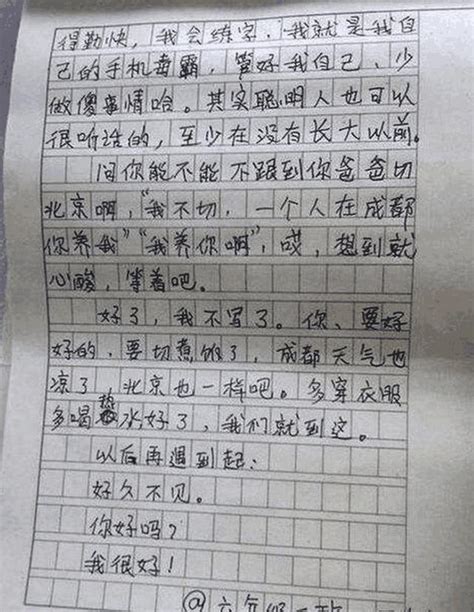 得勤快，我会练字，我就是我自
己的手机毒霸，管好我自己、少
做傻事情哈。其实聪明人也可以
很听话的，至少在没有长大以前。
问你能不能不跟到你爸爸切
北京啊，“我不切，一个人在成都
你养我”“我养你啊”，哎，想到就
心酸，等着吧。
好了，我不写了。你、要好
好的，要切煮饭了，成都天气也
凉了，北京也一样吧。多穿衣服
多喝热水好了，我们就到这。
以后再遇到起：
好久不见。
你好吗？
我很好！
@六年级一